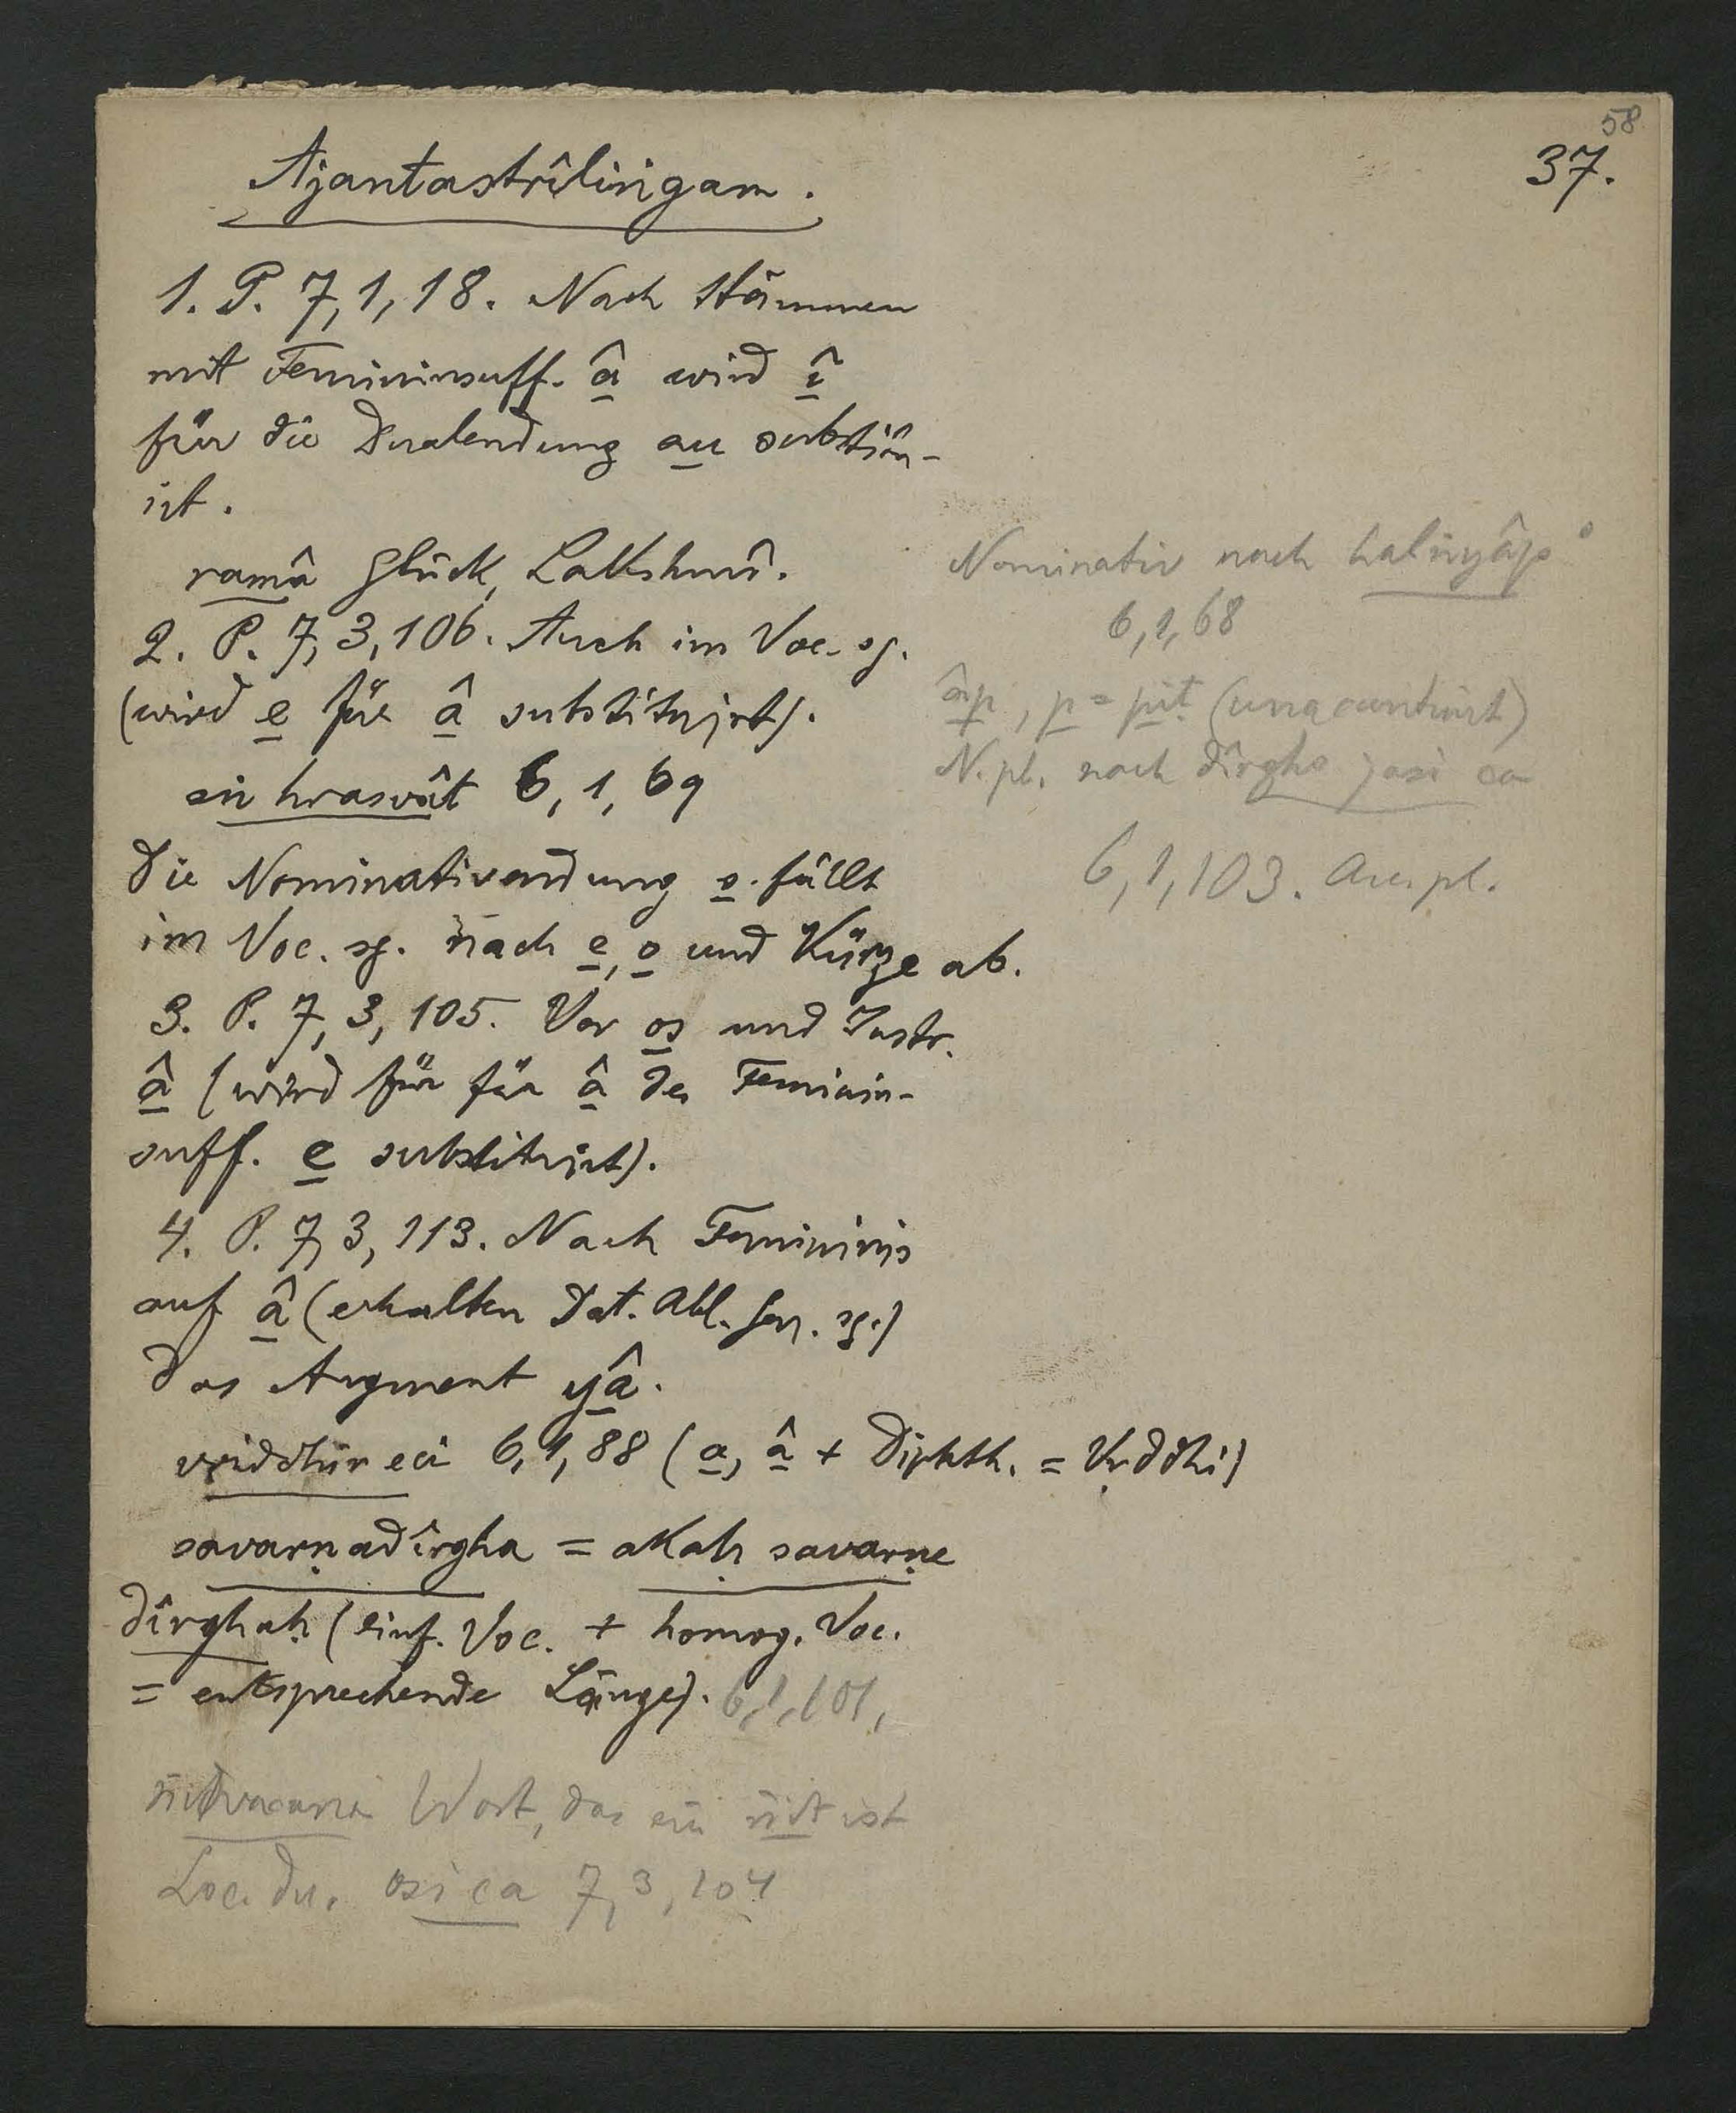 58
37.
Ajantastrîliṅgam.
1. P. 7,1,18. Nach Stämmen
mit Femininsuff. â wird î
für die Dualendung au substitu-
irt.
ramâ Glück, Lakshmî.
2. P. 7,3,106. Auch im Voc. sg.
(wird e für â substituirt).
eṅ hrasvât 6,1,69
Die Nominativendung s fällt
im Voc. sg. nach e, o und Kürze ab.
3. P. 7,3,105. Vor os und Instr.
â (wird für für â des Feminin-
suff. e substituirt).
4. P. 7,3,113. Nach Femininis
auf â (erhalten Dat. Abl. Gen. sg.)
das Augment yâ.
vṛiddhir eci 6,1,88 (a, â + Diphth. = Vṛddhi)
savarṇadîrgha = akaḥ savarṇe
dîrghaḥ (einf. Voc. + homog. Voc.
= entsprechende Länge). 6,1,101,
Wort, das ein ṅit ist
Loc. du. osi ca 7,3,104
Nominativ nach halṅyâp°
6,1,68
âp, p = pit (unaccentuirt)
N. pl. nach dîrgha jasi ca
6,1,103. Acc. pl.